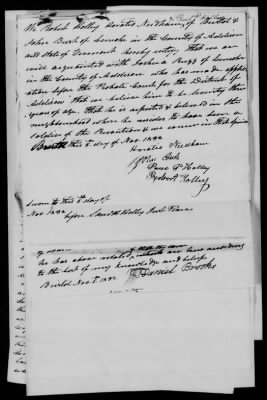 We Robert Holley Horatio Needham of Bristol &
John Bush of Lincoln in the County of Addison
and State of Vermont hereby certify that we are
well acquainted with Joshua Rugg of Lincoln
in the County of Addison who has made appli
cation before the Probate Court for the District of
Addison that we believe him to be seventy three
years of age. that he is reputed & believed in the
neighbourhood where he resides to have been a
soldier of the Revolution & we concur in that opinion
Bristol this 5th day of Nov 1832
Horatio Needham
John Bush
Robert Holley
Sworn to this 5th day of
Nov. 1832
before Saml H. Holley Just Peace
he has above related are true according
to the best of my knowledge and belief
Bristol Nov. 5. 1832
Daniel Brooks